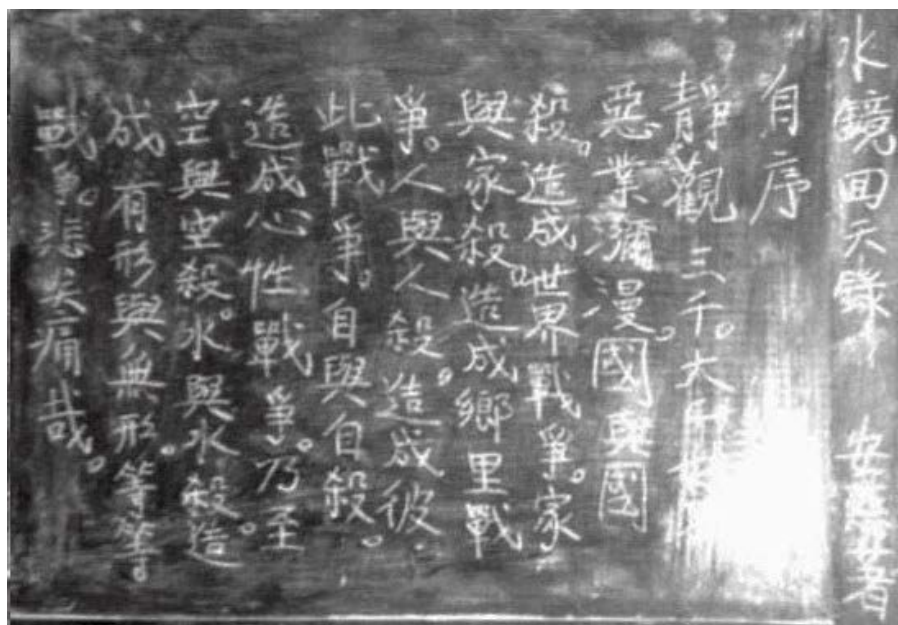 水鏡回天錄 安慈 著
自序
靜觀三千。大
惡業瀰漫。國與國
殺。造成世界戰爭。家
與家殺。造成鄉里戰
爭。人與人殺。造成彼
此戰爭。自與自殺。
造成心性戰爭。乃至
空與空殺。水與水殺。造
成有形與無形。等等。
戰爭。悲夫痛哉。